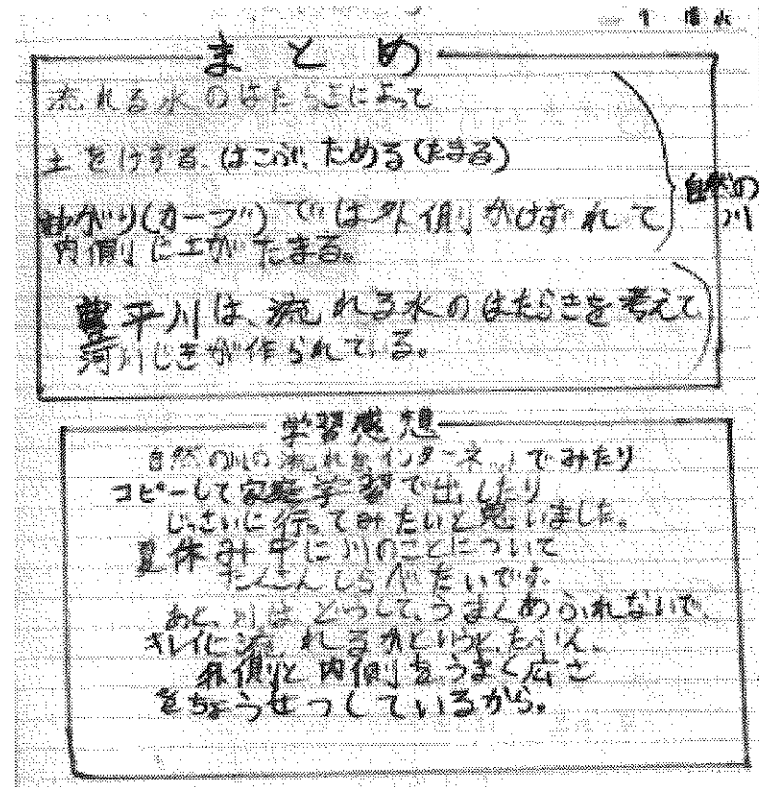 まとめ
流れる水のはたらきによって
土をけずる、はこぶ、ためる(たまる)
まがり(カーブ)では外側がけずれて
内側に土がたまる。
自然の
川
豊平川は、流れる水のはたらきを考えて
河川じきが作られている。
学習感想
自然の川の流れをインターネットでみたり
コピーして家庭学習で出したり
じっさいに行ってみたいと思いました。
夏休み中に川のことについて
たくさんしらべたいです。
あと、川は、どうして、うまくあふれないで、
キレイに流れるかというと、たぶん、
外側と内側をうまく広さ
をちょうせつしているから。